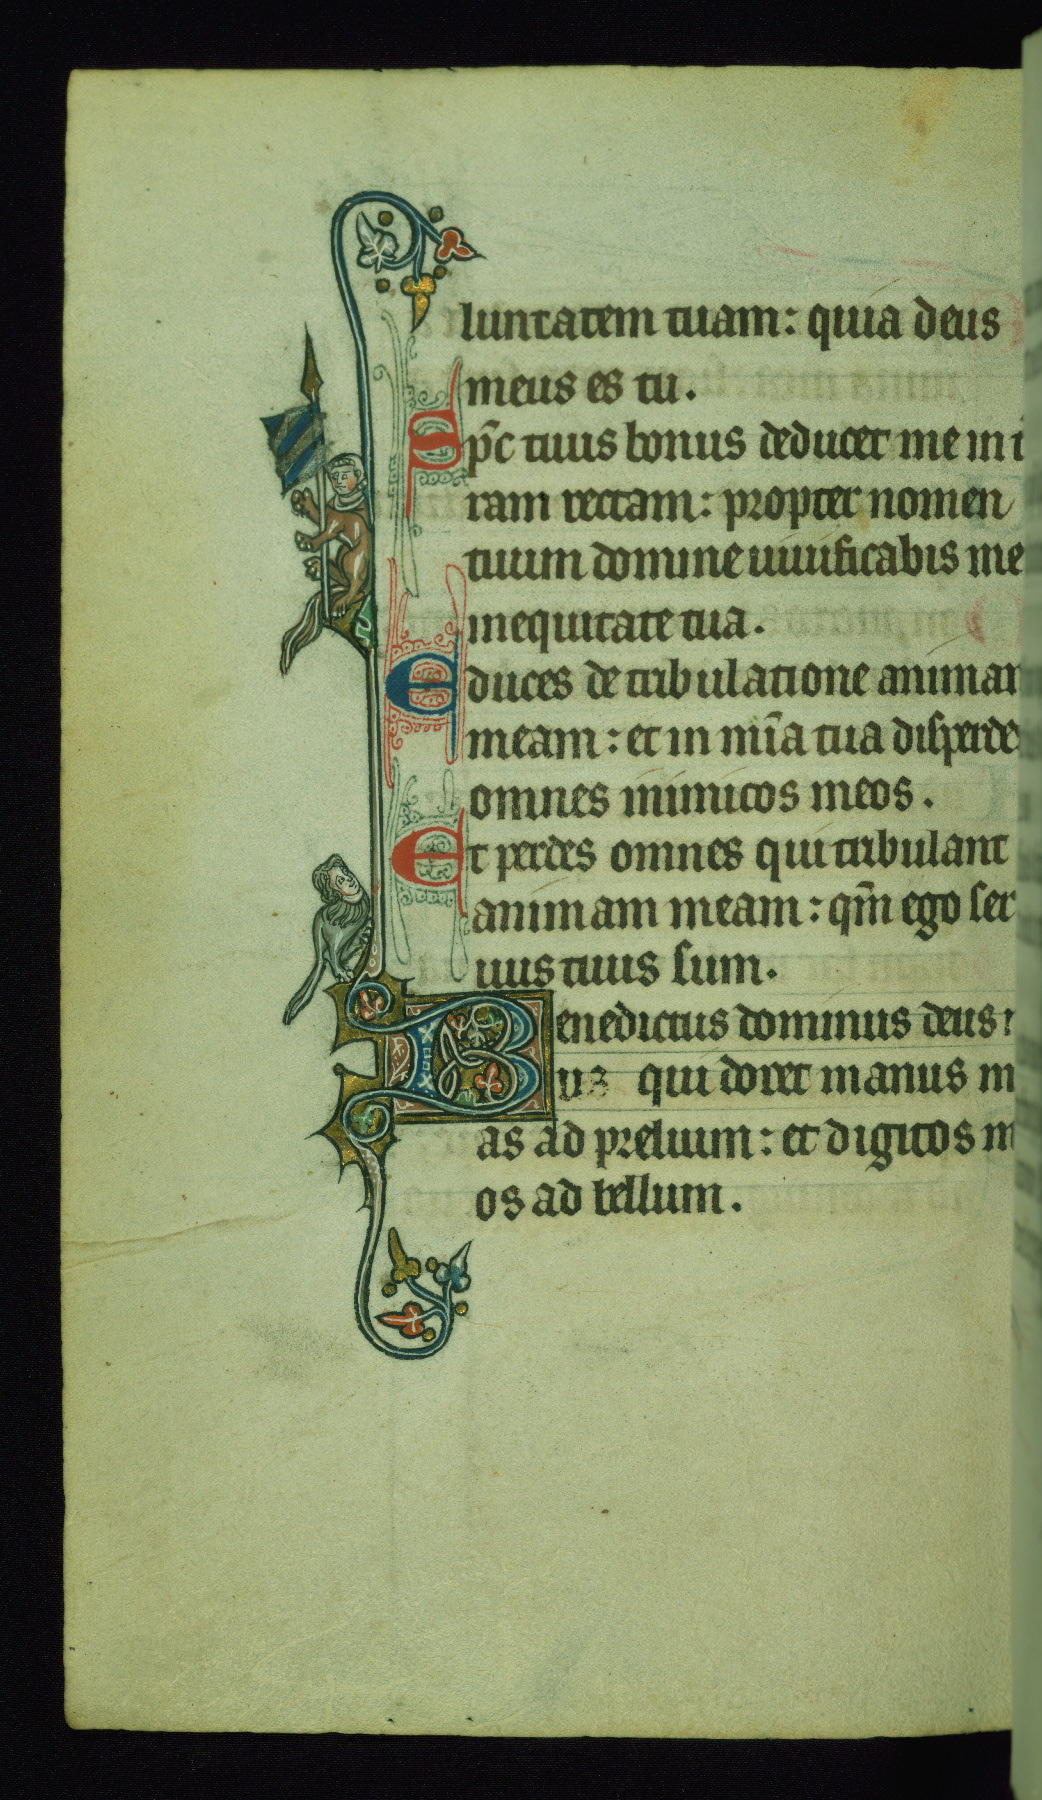 luntatem tuam: quia deus
meus es tu.
Sp̄c tuus bonus deducet me in t
ram rectam: propter nomen
tuum domine uiuificabis me
in equitate tua.
Educes de tribulatione animam
meam: et in mi̅a tua disperdes
omnes inimicos meos.
Et perdes omnes qui tribulant
animam meam: qm̄ ego ser
uus tuus sum.
Benedictus dominus deus m
us qui docet manus m
as ad prelium: et digitos m
os ad bellum.